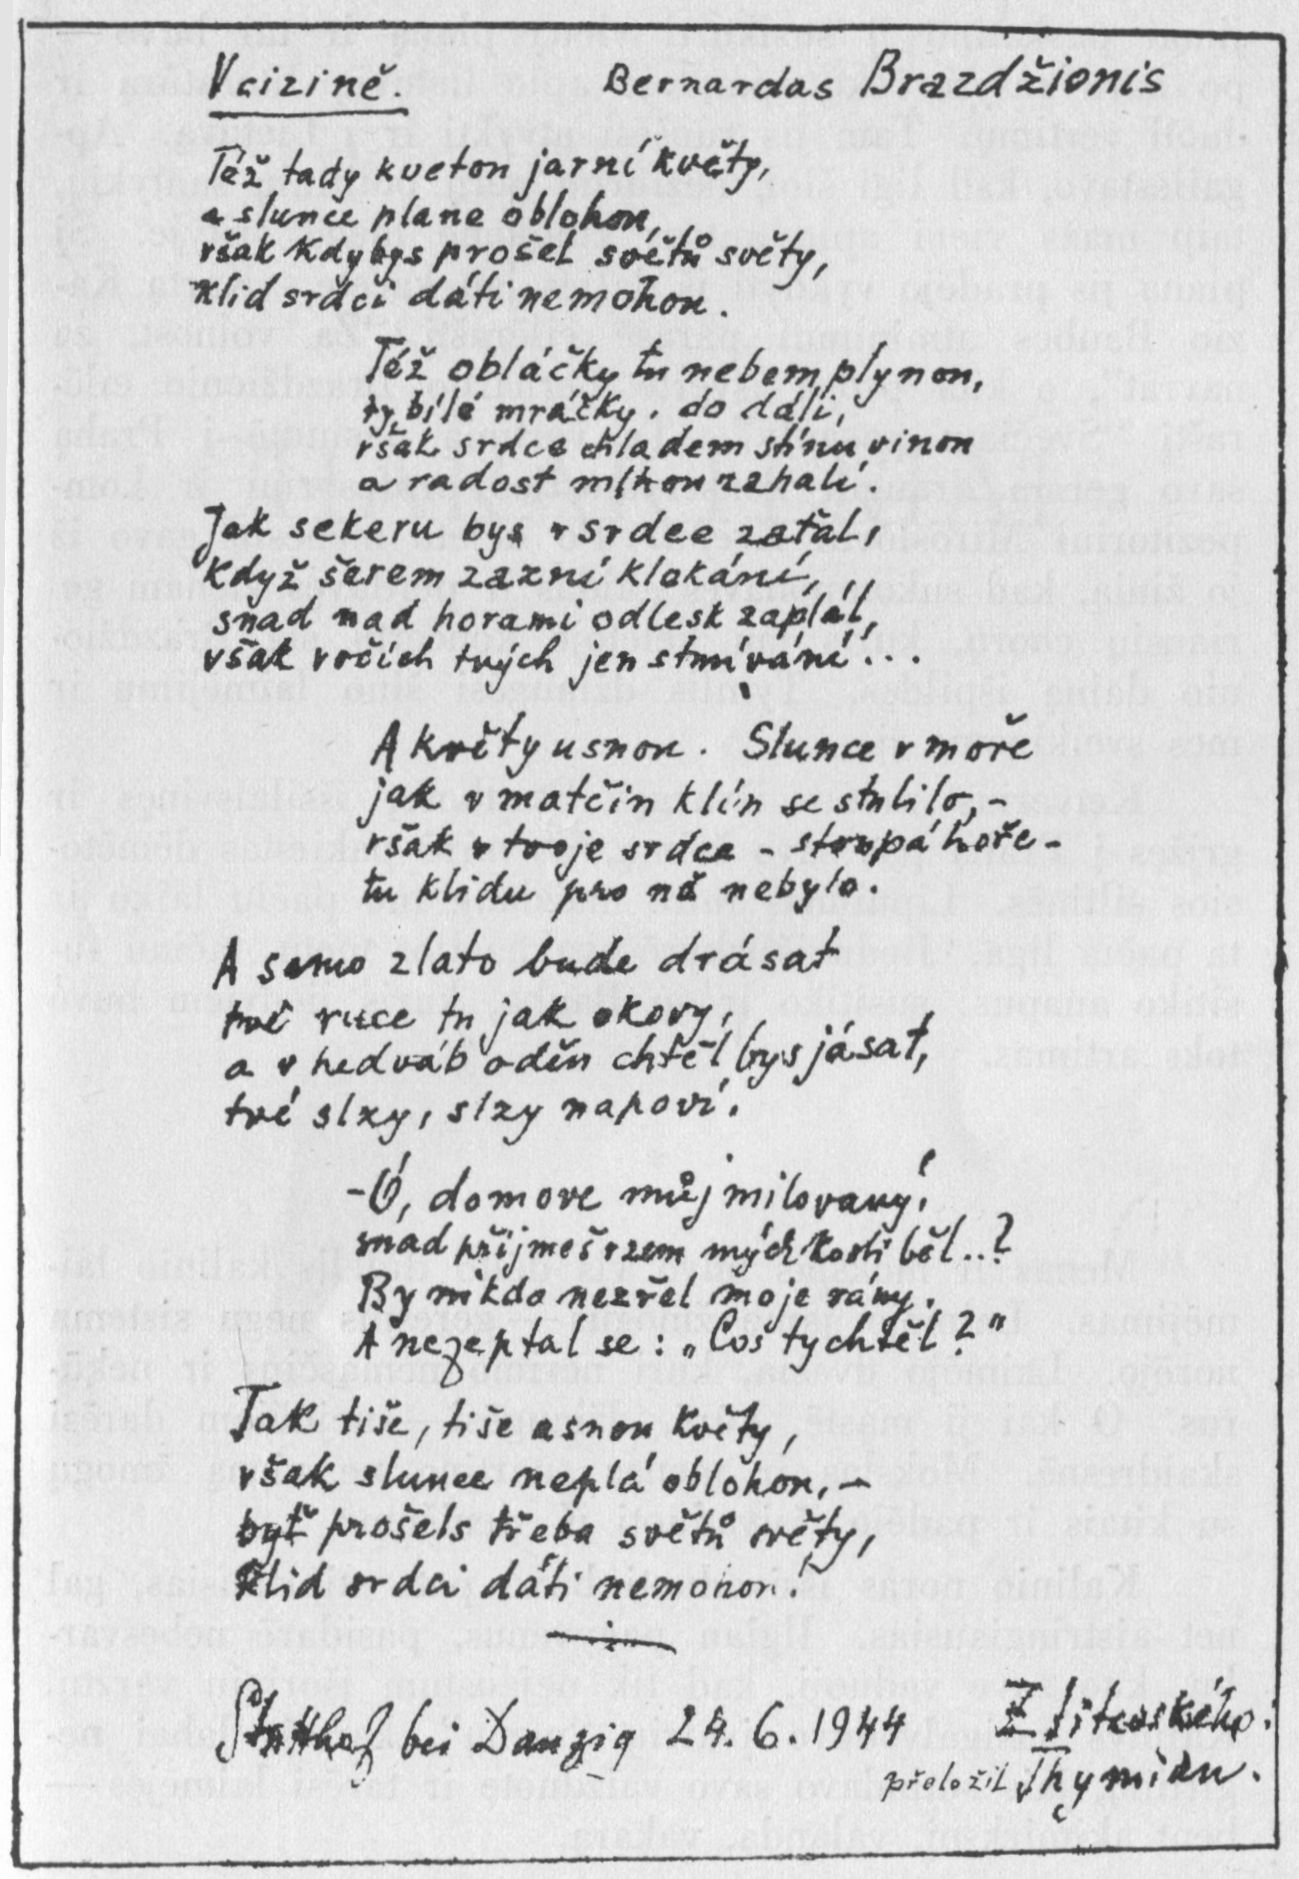 V cizině. Bernardas Brazdžionis
Též tady kvetou jarní květy,
a slunce plane oblohou,
však kdybys prošel světů světy,
klid srdci dáti nemohou.
Též obláčky tu nebem plynou,
ty bílé mráčky. do dáli,
však srdce chladem stínu vinou
a radost mlhou zahalí.
Jak sekeru bys v srdce zaťal,
když šerem zazní klekání,
snad nad horami odlesk zaplál,
však v očích tvých jen stmívání...
A květy usnou. Slunce v moře
jak v matčin klín se stulilo, -
však v tvoje srdce - stoupá hoře -
tu klidu pro ně nebylo.
A samo zlato bude drásat
tvé ruce tu jak okovy,
a v hedváb oděn chtěl bys jásat,
tvé slzy, slzy napoví.
- Ó, domove můj milovaný!
snad přijmeš v zem mých kostí běl..?
By nikdo nezřel moje rány.
A nezeptal se: „Cos ty chtěl?"
Tak tiše, tiše usnou květy,
však slunce neplá oblohou, -
byť prošels třeba světů světy,
klid srdci dáti nemohou!
Stutthof bei Danzig 24. 6. 1944 Z litevského:
přeložil Thymian.